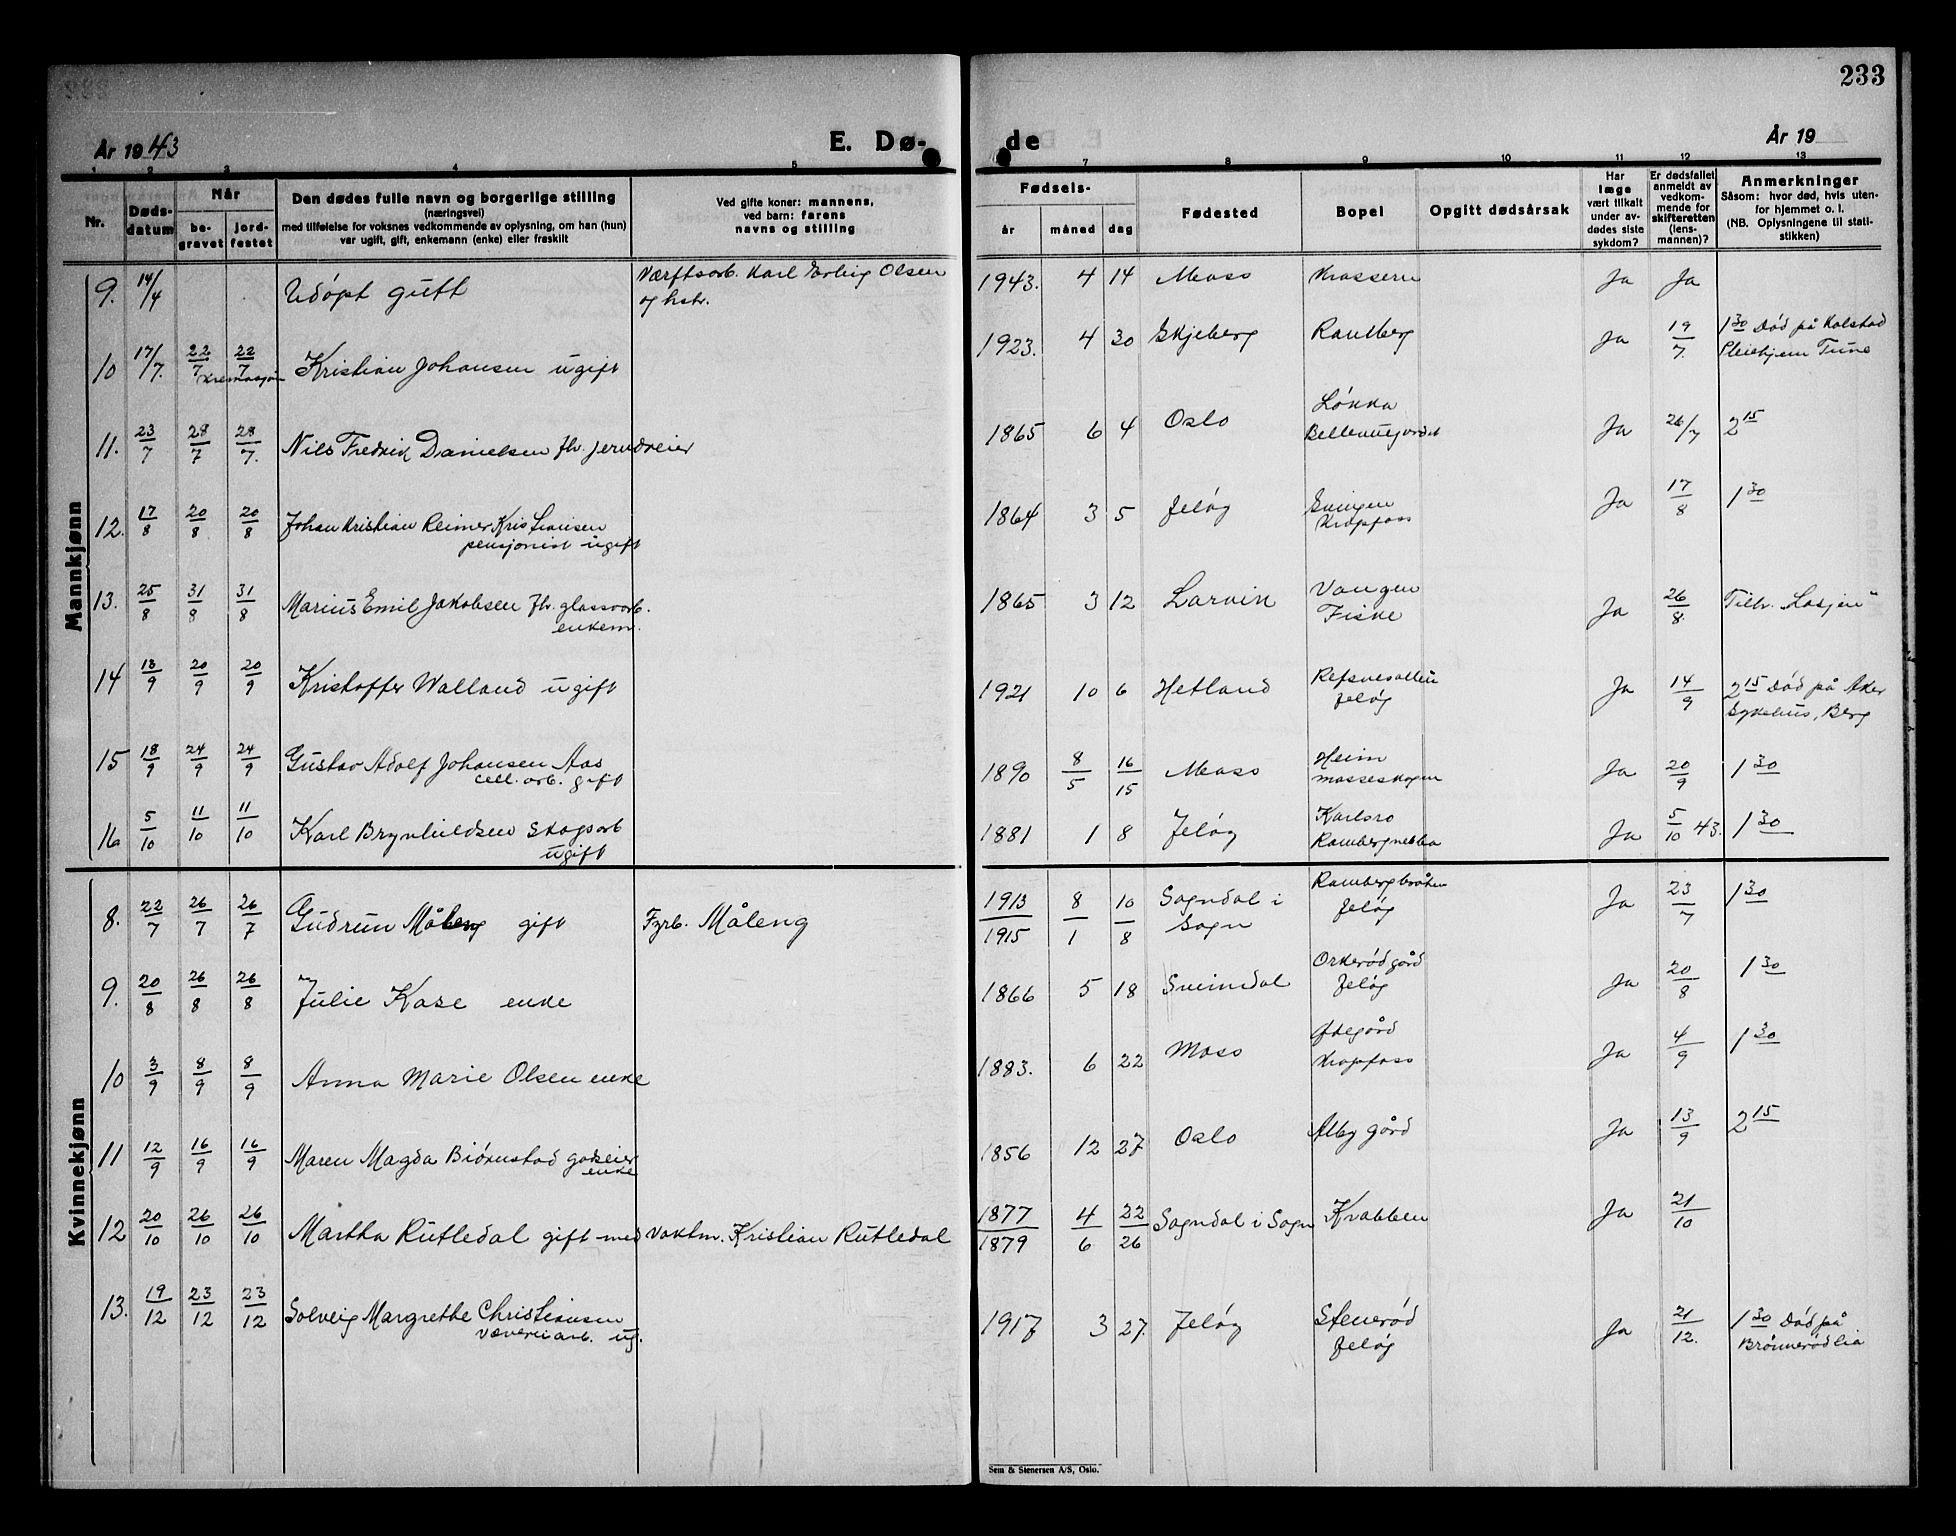 233
År 1943
E. Dø-
de
År 19
1 2 3 4 5 7 8 9 10 11 12 13
Nr.
Døds-
datum
Når
be-
gravet
jord-
festet
Den dødes fulle navn og borgerlige stilling
(næringsvei)
med tilføielse for voksnes vedkommende av oplysning, om han (hun)
var ugift, gift, enkemann (enke) eller fraskilt
Ved gifte koner: mannens,
ved barn: farens
navns og stilling
Fødsels-
år måned dag
Fødested
Bopel
Opgitt dødsårsak
Har
læge
vært tilkalt
under av-
dødes siste
sykdom?
Er dødsfallet
anmeldt av
vedkom-
mende for
skifteretten
(lens-
mannen)?
Anmerkninger
Såsom: hvor død, hvis uten-
for hjemmet o. l.
(NB. Oplysningene til stati-
stikken)
Mannkjønn
9. 14/4 Udøpt gutt Værftsarb. Karl Erling Olsen 1943. 4 14 Moss Krossern Ja Ja
og hstr.
10 17/7. 22/7 22/7 Kristian Johansen ugift 1923. 4 30 Skjeberg Ramberg Ja 19/7. 1 30 Död på Kalstad
Kremasjon
Pleiehjem Tune
11. 23/7 28/7 28/7. Nils Fredrik Danielsen fhv. jerndreier 1865 6 4 Oslo Løkka Ja 26/7 2 15
12. 17/8 20/8 20/8 Johan Kristian Reimer Kristiansen 1864 3 5 Jeløy Svingen Ja 17/8 1 30
pensjonist ugift Kropfoss
13. 25/8 31/8 31/8 Marius Emil Jakobsen fhv. glassarb. 1865 3 12 Larvik Vangen Ja 26/8. Tilh. "Losjen"
enkem. Fiske
14 13/9 20/9 20/9 Kristoffer Walland ugift 1921 10 6 Hetland Refsnesalleen Ja 14/9 2 15 Död på Aker
Jeløy Sykehus, Berg
15 18/9 24/9 24/9 Gustav Adolf Johansen Aas 1890 8/5 16/15 Moss Heim Ja 20/9 1 30
cell. arb. gift Mosseskogen
16 5/10 11/10 11/10 Karl Brynhildsen Skogsarb 1881 1 8 Jeløy Karlsro Ja 5/10 43. 1 30
ugift Rambergnebba
Kvinnekjønn
8. 22/7 26/7 26/7 Gudrun Måleng gift Fyrb. Måleng 1913/1915 8/1 10/8 Sogndal i Rambergbråten Ja 23/7 1 30
Sogn Jeløy
9. 20/8 26/8 26/8 Julie Kase enke 1866 5 18 Sveindal Orkerød gård Ja 20/8 1 30
Jeløy
10 3/9 8/9 8/9 Anna Marie Olsen enke 1883. 6 22 Moss Ja 4/9 1 30
Kropfoss
11 12/9 16/9 16/9 Maren Magda Biørnstad godseier 1856 12 27 Oslo Alby gård Ja 13/9 2 15
enke
12 20/10 26/10 26/10 Martha Rutledal gift med Vaktm. Kristian Rutledal 1877/1879 4/6 22/26 Sogndal i Sogn Krabben Ja 21/10
13. 19/12 23/12 23/12 Solveig Margrethe Christiansen 1917 3 27. Jeløy Stenerød Ja 21/12. 1 30 Död på
Væveriarb. ug. Jeløy Brønnerødlia
Sem & Stenersen A/S, Oslo.